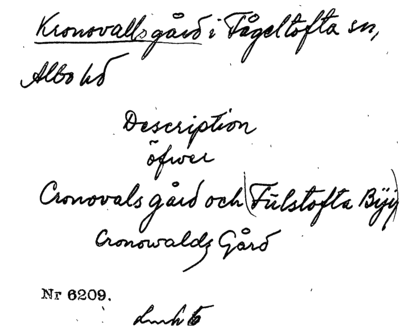 Kronovallsgård i Fågeltofta sn,
Albo hd
Description
öfwer
Cronovals gård och (Fülstofta Bÿy)
Cronowalds Gård
Nr 6209.